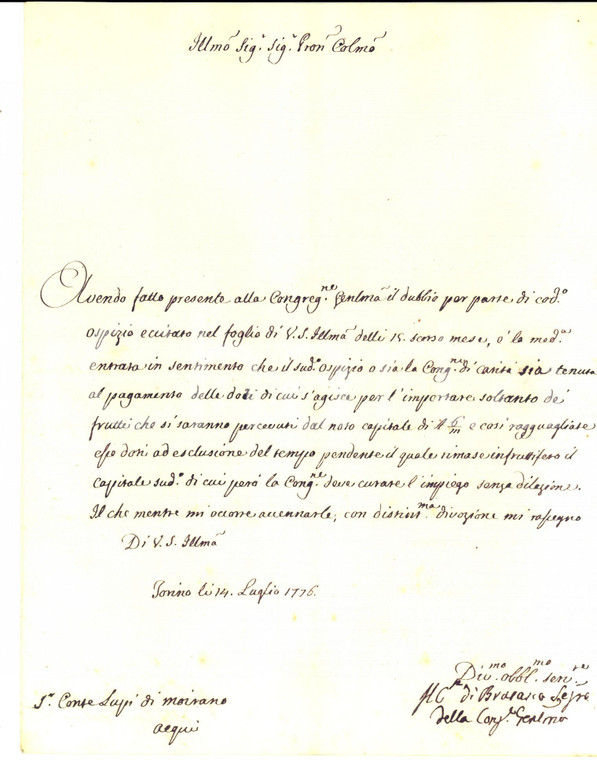 Illmo Sig.r Sig.r Pron Colmo
Avendo fatto presente alla Congreg.ne Genlma il dubbio per parte di cod.o
ospizio eccitato nel foglio di V.S. Illma delli 15. scorso mese, è la med.a
entrata in sentimento che il sud.o ospizio o sia la Cong.ne di carità sia tenuta
al pagamento delle doti di cui s'agisce per l'importare soltanto de'
frutti che si saranno percevuti dal noto capitale di 6/m e così ragguagliate
esse doti ad esclusione del tempo pendente il quale rimase infruttifero il
capitale sud.o di cui però la Cong.ne deve curare l'impiego senza dilazione.
Il che mentre mi occorre accennarle, con distint.ma divozione mi rassegno
Di V. S. Illma
Torino li 14. Luglio 1776.
Div.mo obbl.mo serv.re
di Brosasco Seg.ro
della Cong.e Genlma
S.r Conte Lupi di moirano
acqui